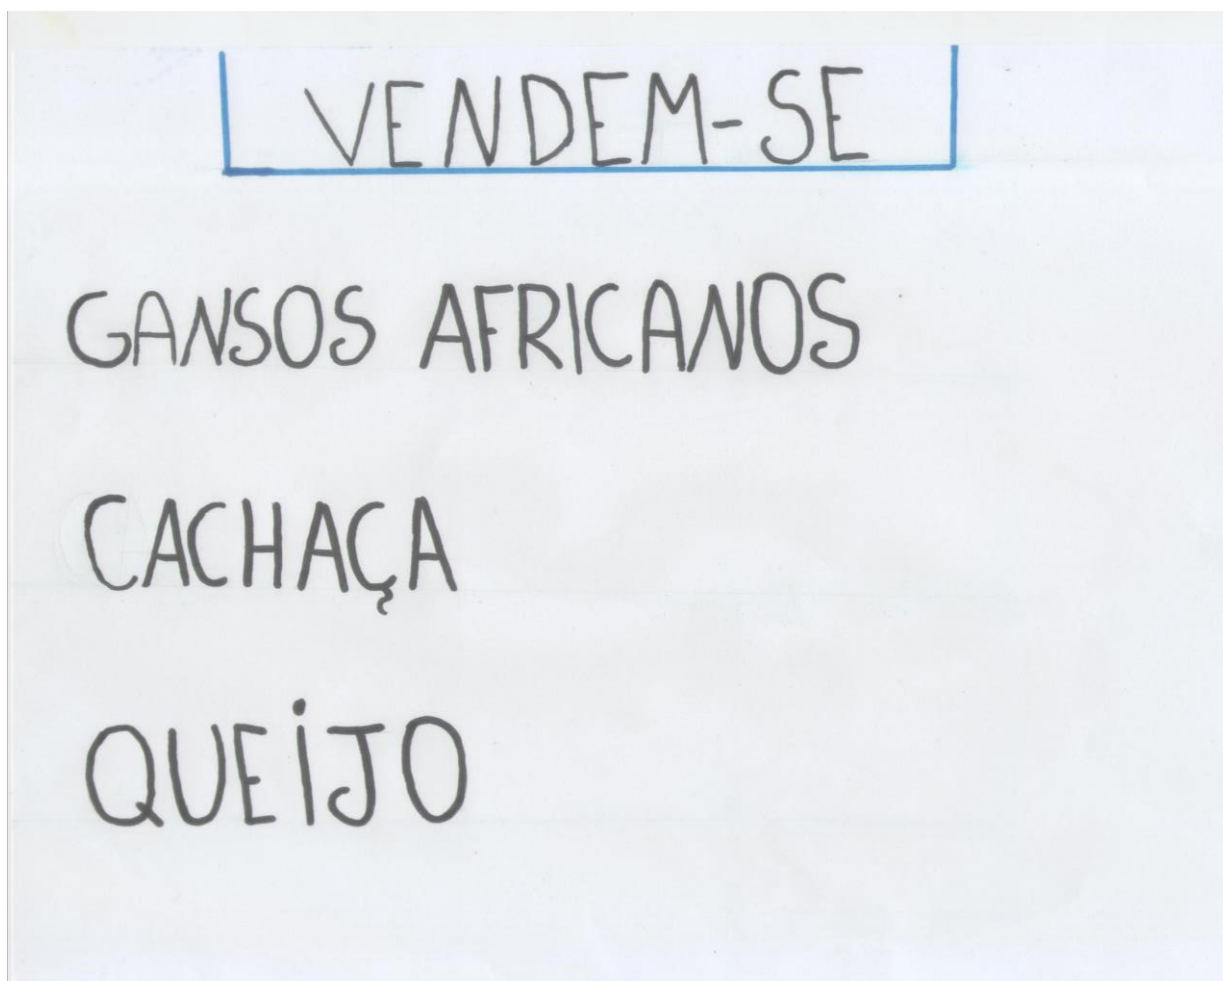 VENDEM-SE
GANSOS AFRICANOS
CACHAÇA
QUEIJO